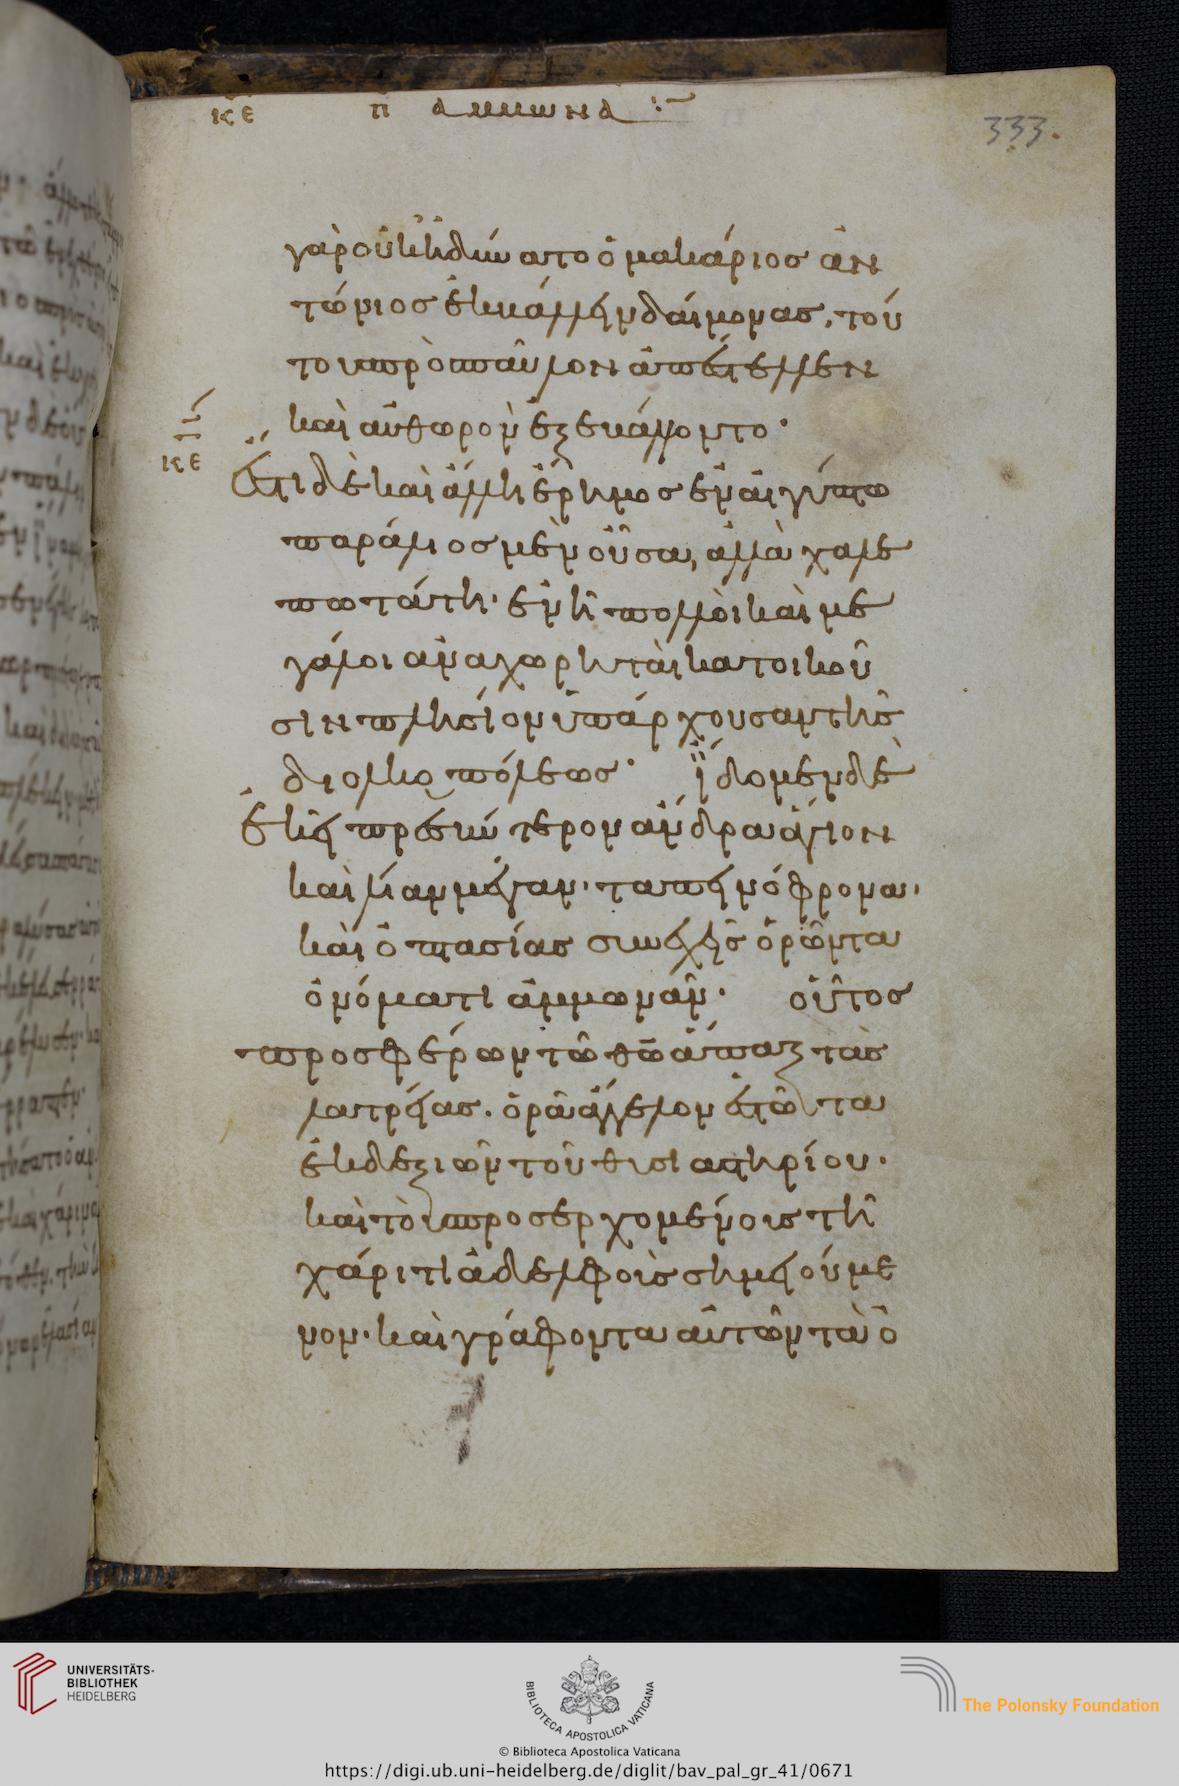 κε π αμμωνα :~
333.
γὰρ οὐκ ἠδύνατο ὁ μακάριος ἀν
τώνιος ἐκβάλλειν δαίμονας, τού
τους πρὸς παῦλον ἀπέστελλεν
καὶ αὔθωρον ἐξεβάλλοντο·
κε
ἔστι δὲ καὶ ἄλλη ἔρημος ἐν αἰγύπτω
παράλιος μὲν οὖσα, ἀλλὰ χαλε
πωτάτη· ἐν ἧ πολλοὶ καὶ με
γάλοι ἀναχωρηταὶ κατοικοῦ
σιν πλησίον ὑπάρχουσαν τῆς
διολκοπόλεως· ἴδομεν δὲ
ἐκεῖ πρεσβύτερον ἄνδρα ἅγιον
καὶ λίαν μέγαν· ταπεινόφρονα·
καὶ ὀπτασίας συνεχεῖς ὁρῶντα
ὀνόματι ἀμμωνᾶν· οὗτος
προσφέρων τῶ θῶ ἅπαξ τὰς
λατρείας. ὁρᾶ ἄγγελον ἑστῶτα
ἐκ δεξιῶν τοῦ θυσιαστηρίου·
καὶ τοὺς προσερχομένους τῆ
χάριτι ἀδελφοὺς σημειούμε
νον· καὶ γράφοντα αὐτῶν τὰ ὀ
UNIVERSITÄTS-
BIBLIOTHEK
HEIDELBERG
BIBLIOTECA APOSTOLICA VATICANA
The Polonsky Foundation
© Biblioteca Apostolica Vaticana
https://digi.ub.uni-heidelberg.de/diglit/bav_pal_gr_41/0671